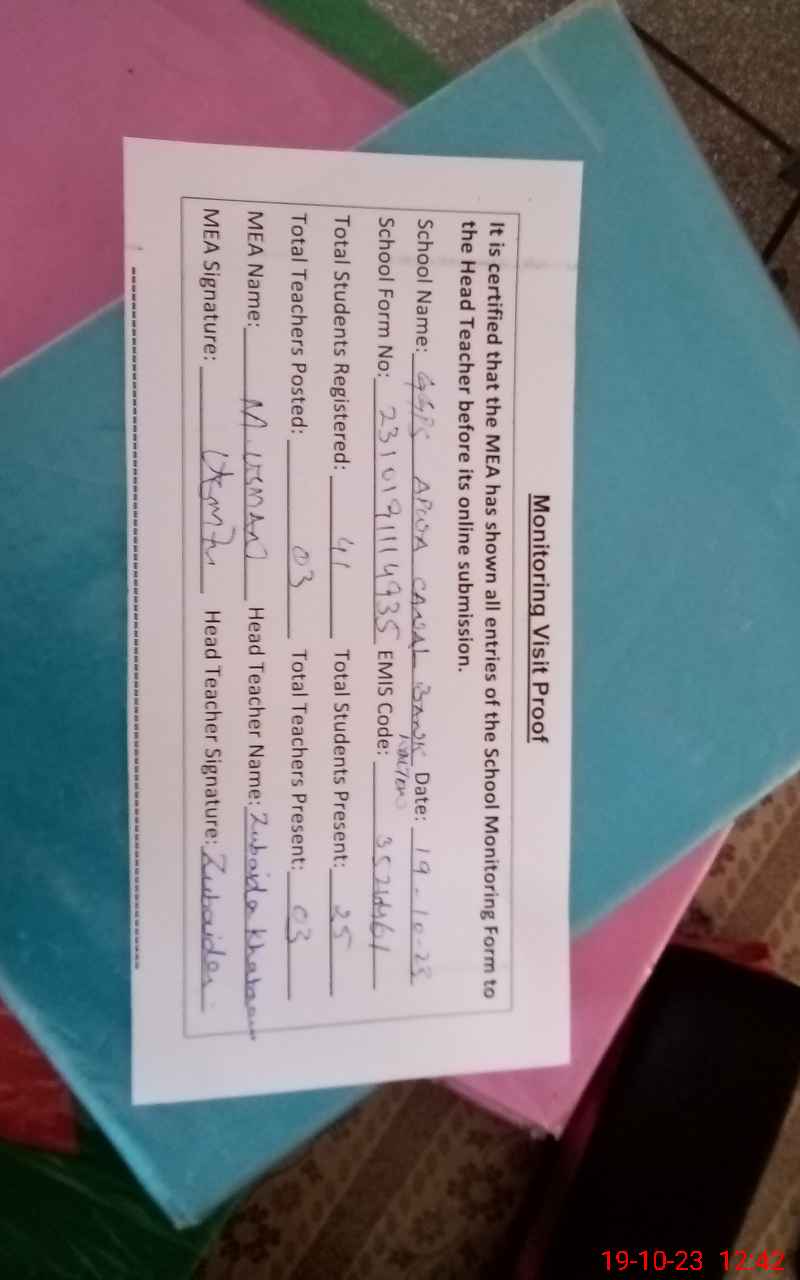 Monitoring Visit Proof
It is certified that the MEA has shown all entries of the School Monitoring Form to
the Head Teacher before its online submission.
School Name: GGPS APWA CANAL BANK Date: 19-10-23
WALTON
School Form No: 2310191114935 EMIS Code:
Total Students Registered: 41 Total Students Present: 25
Total Teachers Posted: 03 Total Teachers Present: 03
MEA Name: M. USMAN Head Teacher Name: Zubaida Khatoon
MEA Signature: Head Teacher Signature: Zubaida
19-10-23 12:42